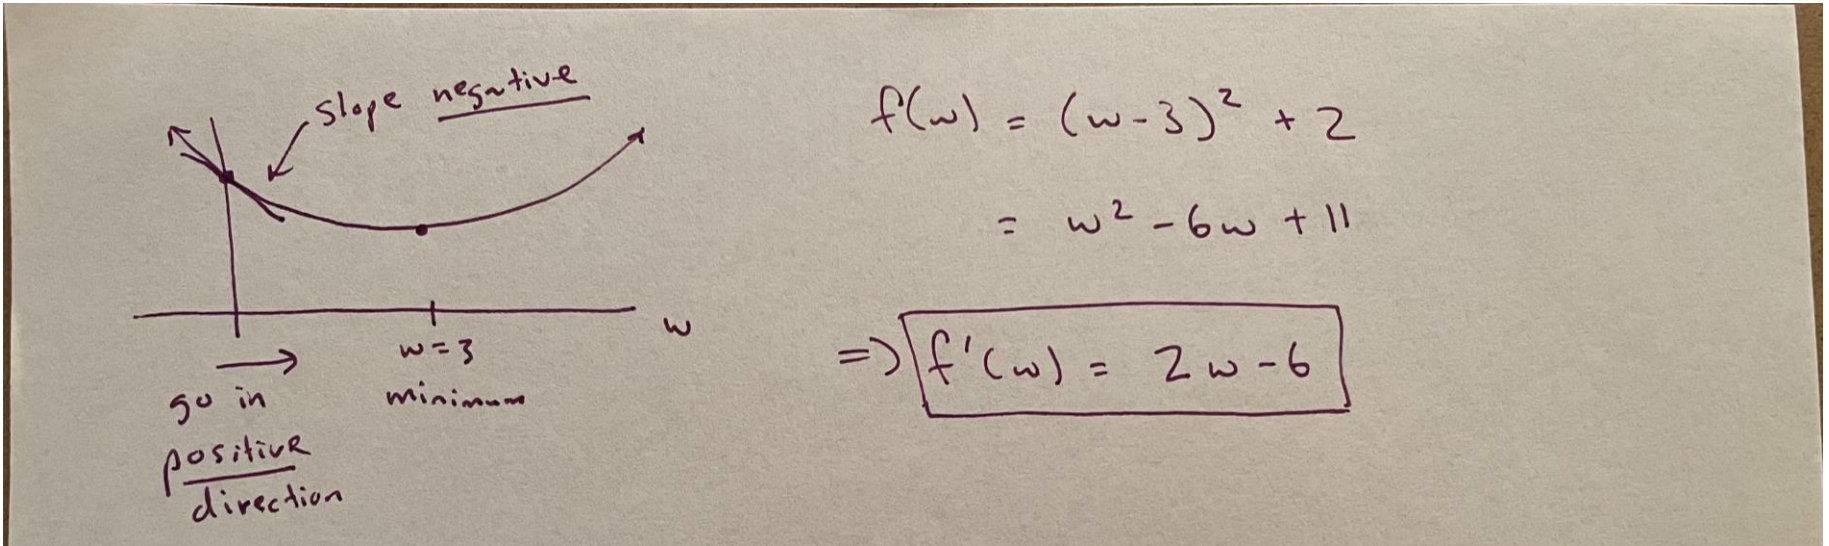 slope negative
w
w=3
minimum
go in
positive
direction
f(w) = (w-3)² + 2
= w² - 6w + 11
=> f'(w) = 2w - 6